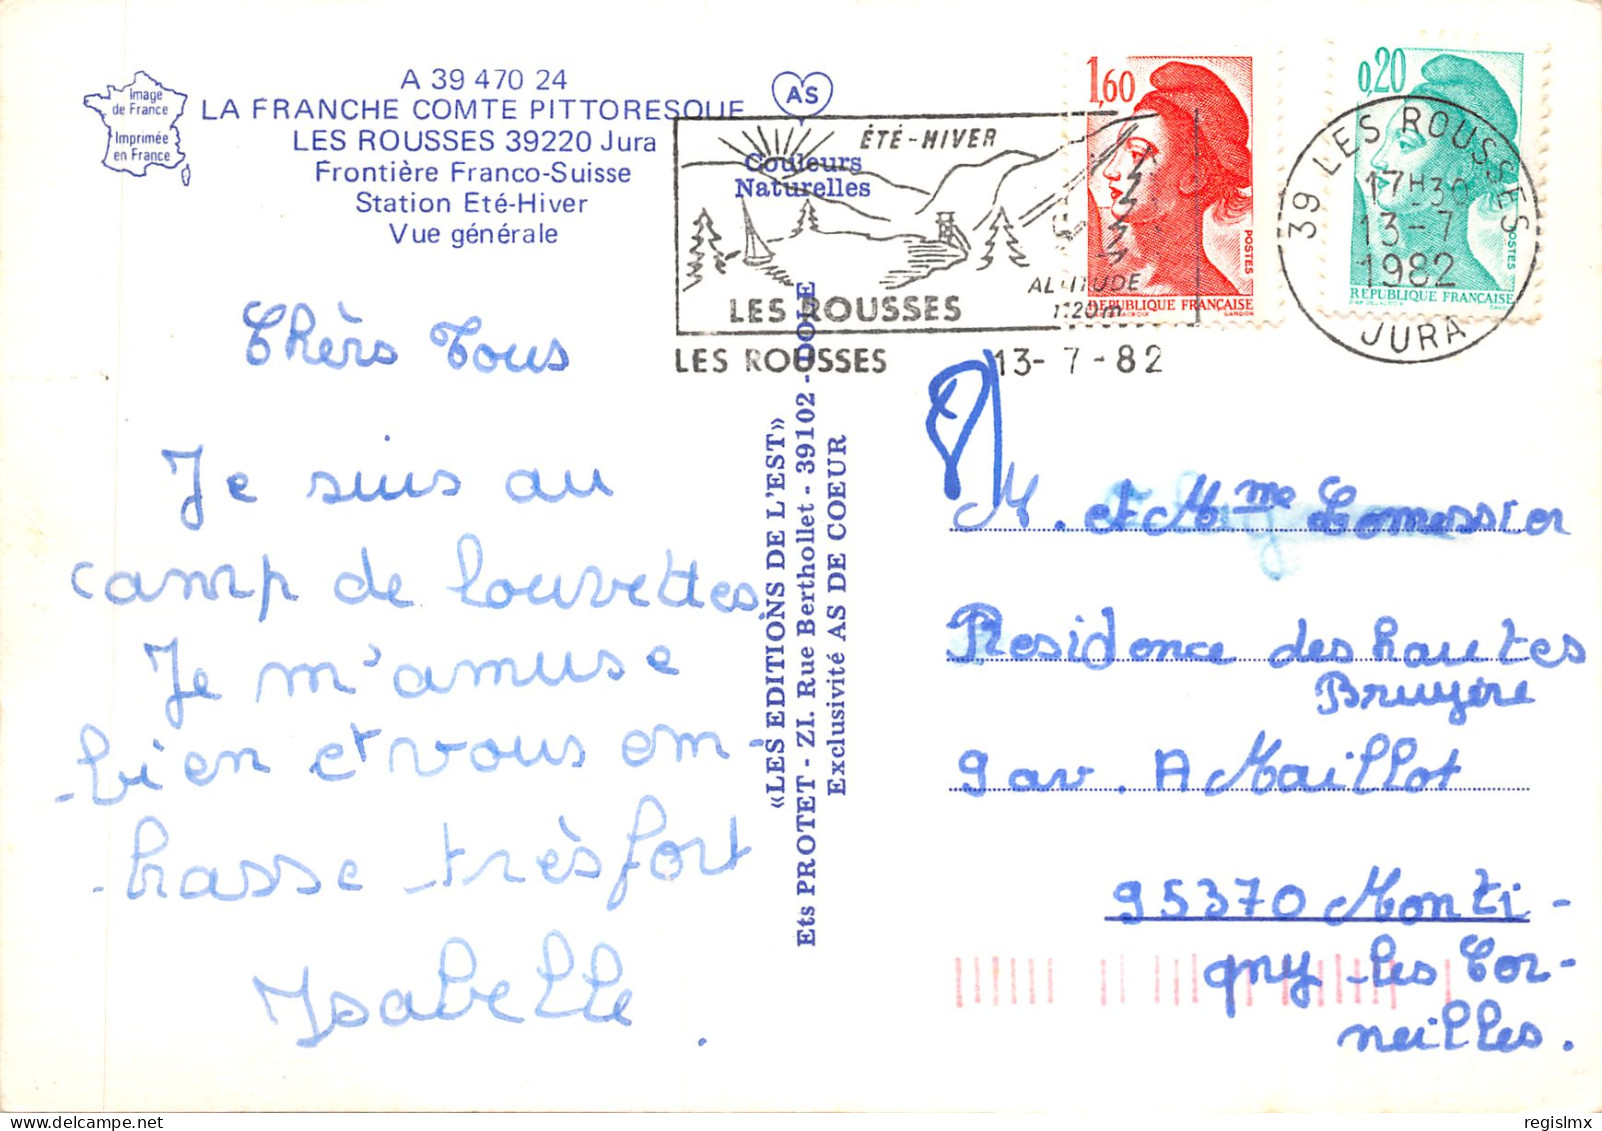 Image
de France
Imprimée
en France
A 39 470 24
LA FRANCHE COMTE PITTORESQUE
LES ROUSSES 39220 Jura
Frontière Franco-Suisse
Station Eté-Hiver
Vue générale
AS
Couleurs
Naturelles
ÉTÉ-HIVER
LES ROUSSES
ALTITUDE
1120m
LES ROUSSES 13-7-82
1,60
POSTES
REPUBLIQUE FRANÇAISE
0,20
POSTES
REPUBLIQUE FRANÇAISE
39 LES ROUSSES
17H30
13-7
1982
JURA
Chèrs Tous
Je suis au
camp de louvettes
Je m'amuse
bien et vous em-
-brasse très fort
Isabelle.
«LES EDITIONS DE L'EST»
Ets PROTET - ZI. Rue Berthollet - 39102 - DOLE
Exclusivité AS DE COEUR
M. et Mme Lomessior
Residence des hautes
Bruyère
9 av. A Maillot
95370 Monti-
gny-les Cor-
neilles.
delcampe.net
regislmx